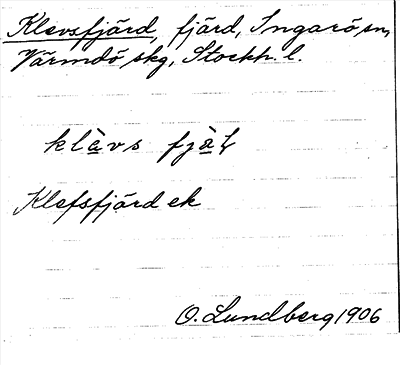 Klevsfjärd, fjärd, Ingarö sn,
Värmdö skg, Stockh. l.
klàvs fjàḷ
Klefsfjärd ek
O. Lundberg 1906